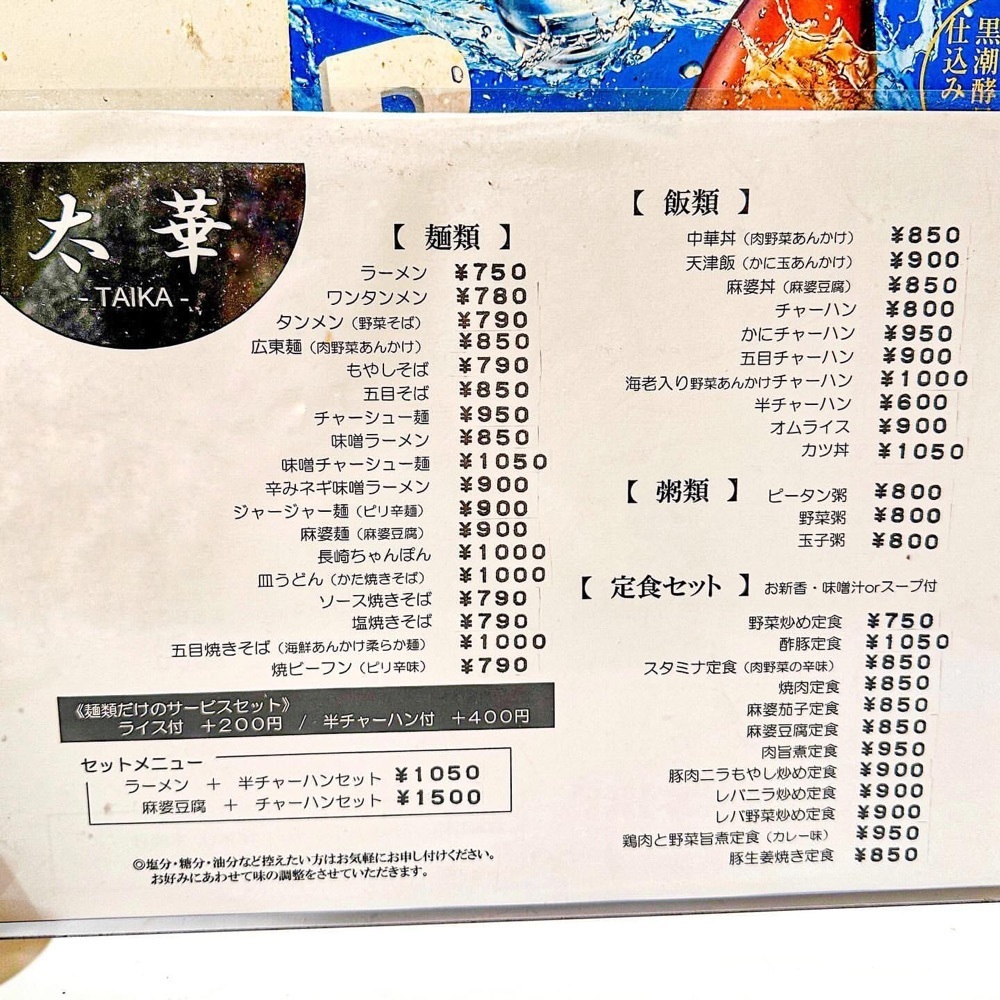 黒潮酵
仕込み
太 華
- TAIKA -
【 麺類 】
ラーメン ¥750
ワンタンメン ¥780
タンメン(野菜そば) ¥790
広東麺(肉野菜あんかけ) ¥850
もやしそば ¥790
五目そば ¥850
チャーシュー麺 ¥950
味噌ラーメン ¥850
味噌チャーシュー麺 ¥1050
辛みネギ味噌ラーメン ¥900
ジャージャー麺(ピリ辛麺) ¥900
麻婆麺(麻婆豆腐) ¥900
長崎ちゃんぽん ¥1000
皿うどん(かた焼きそば) ¥1000
ソース焼きそば ¥790
塩焼きそば ¥790
五目焼きそば(海鮮あんかけ柔らか麺) ¥1000
焼ビーフン(ピリ辛味) ¥790
《麺類だけのサービスセット》
ライス付 +200円 / 半チャーハン付 +400円
セットメニュー
ラーメン + 半チャーハンセット ¥1050
麻婆豆腐 + チャーハンセット ¥1500
◎塩分・糖分・油分など控えたい方はお気軽にお申し付けください。
お好みにあわせて味の調整をさせていただきます。
【 飯類 】
中華丼(肉野菜あんかけ) ¥850
天津飯(かに玉あんかけ) ¥900
麻婆丼(麻婆豆腐) ¥850
チャーハン ¥800
かにチャーハン ¥950
五目チャーハン ¥900
海老入り野菜あんかけチャーハン ¥1000
半チャーハン ¥600
オムライス ¥900
カツ丼 ¥1050
【 粥類 】
ピータン粥 ¥800
野菜粥 ¥800
玉子粥 ¥800
【 定食セット 】お新香・味噌汁orスープ付
野菜炒め定食 ¥750
酢豚定食 ¥1050
スタミナ定食(肉野菜の辛味) ¥850
焼肉定食 ¥850
麻婆茄子定食 ¥850
麻婆豆腐定食 ¥850
肉旨煮定食 ¥950
豚肉ニラもやし炒め定食 ¥900
レバニラ炒め定食 ¥900
レバ野菜炒め定食 ¥900
鶏肉と野菜旨煮定食(カレー味) ¥950
豚生姜焼き定食 ¥850